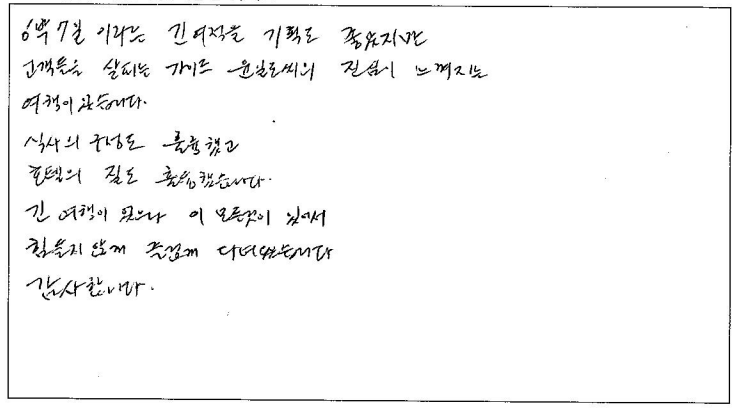 6박7일 이라는 긴여정을 기획도 좋았지만
고객들을 살피는 가이드 윤일로씨의 진심이 느껴지는
여행이었습니다.
식사의 구성도 훌륭했고
호텔의 질도 훌륭했습니다.
긴 여행이었으나 이 모든것이 있어서
힘들지 않게 즐겁게 다녀왔습니다
감사합니다.